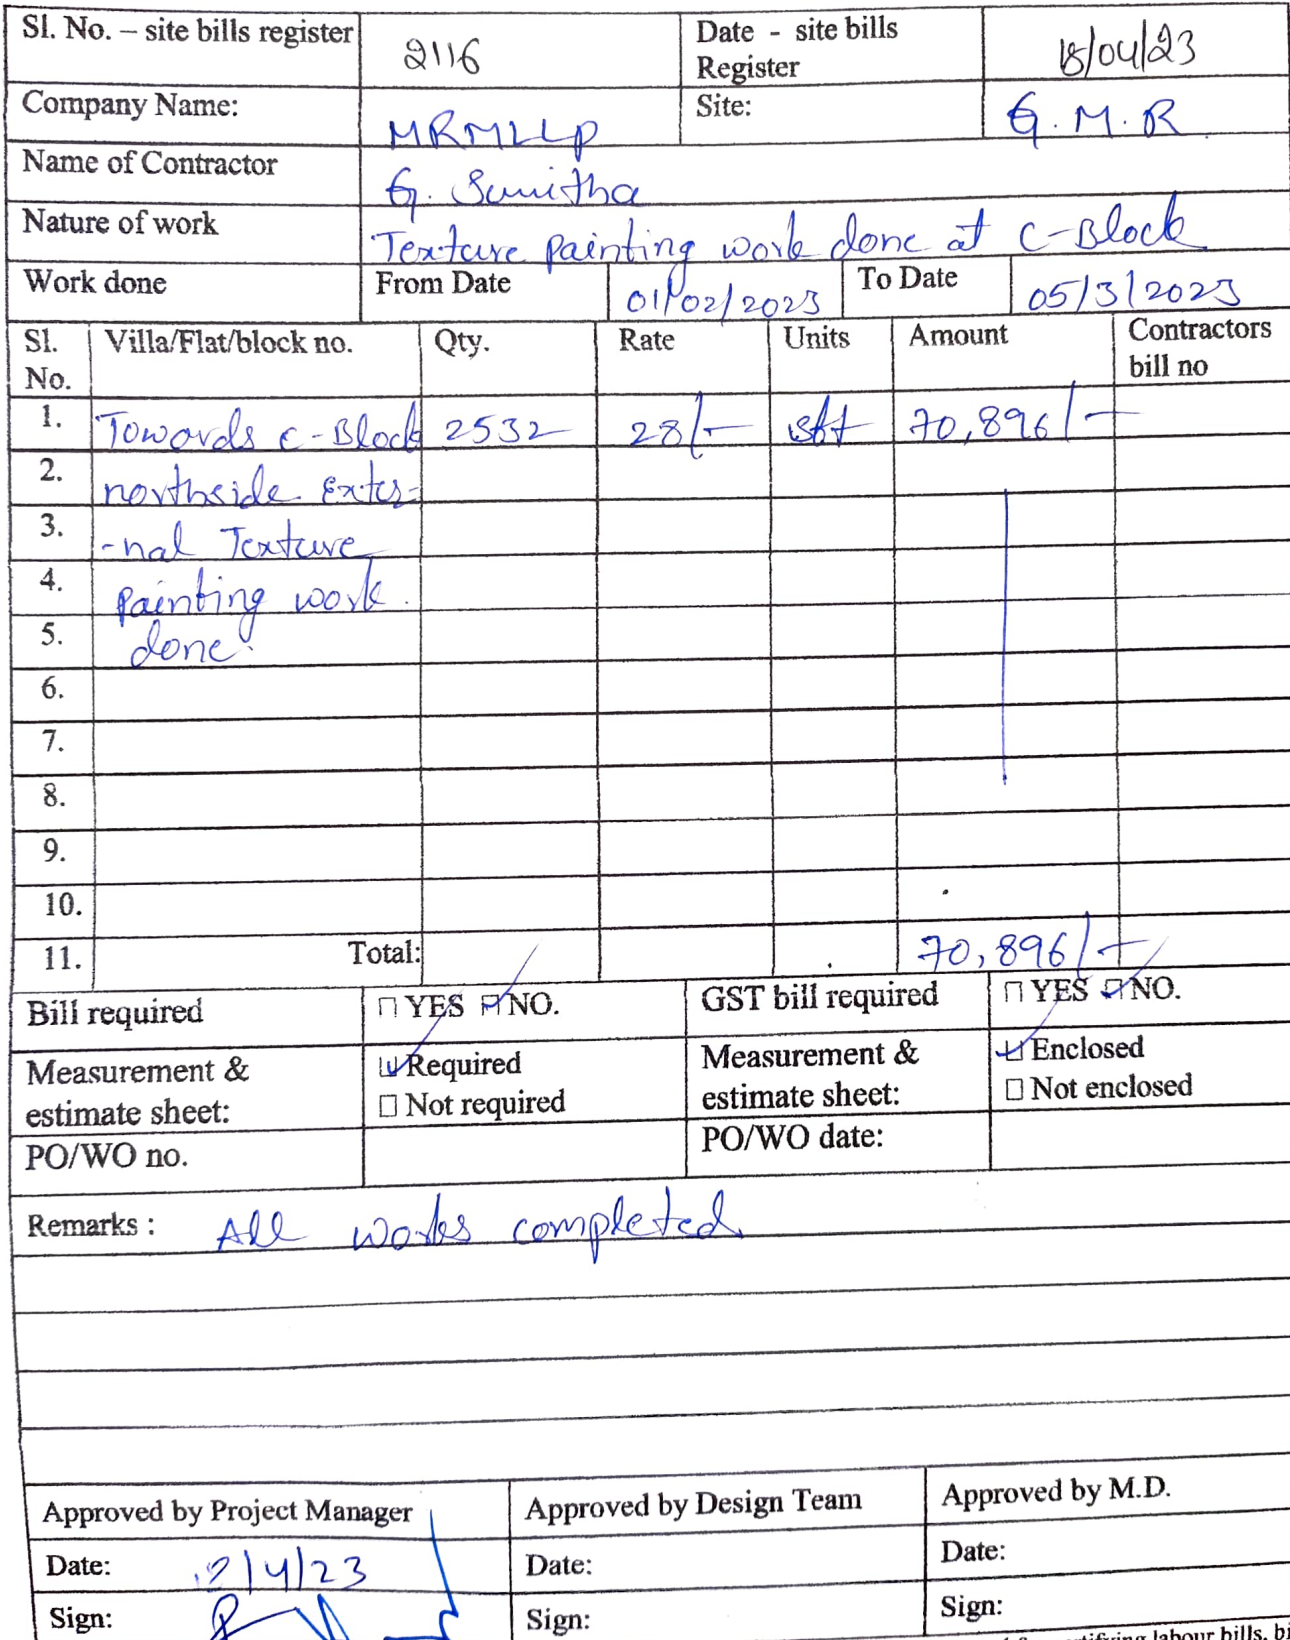 Sl. No. – site bills register 2116 Date - site bills Register 18/04/23
Company Name: MRMLLP Site: G.M.R
Name of Contractor G. Sunitha
Nature of work Texture painting work done at C-Block
Work done From Date 01/02/2023 To Date 05/3/2023
Sl. No. Villa/Flat/block no. Qty. Rate Units Amount Contractors bill no
1. Towards C-Block 2532 28/- sft 70,896/-
2. northside Exter-
3. -nal Texture
4. painting work
5. done.
6.
7.
8.
9.
10.
11. Total: 70,896/-
Bill required YES NO. GST bill required YES NO.
Measurement & estimate sheet: Required Measurement & estimate sheet: Enclosed
Not required Not enclosed
PO/WO no. PO/WO date:
Remarks : All works completed
Approved by Project Manager Approved by Design Team Approved by M.D.
Date: 12/4/23 Date: Date:
Sign: Sign: Sign:
labour bills,